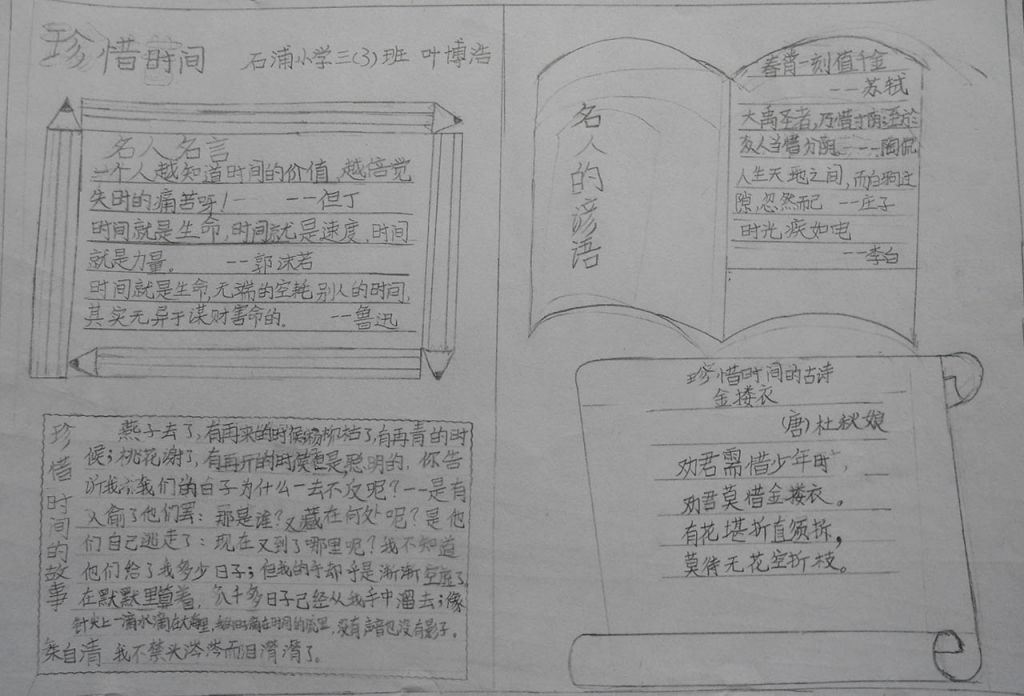 珍惜时间 石浦小学三(3)班 叶博浩
名人名言
一个人越知道时间的价值,越倍觉
失时的痛苦呀!——但丁
时间就是生命,时间就是速度,时间
就是力量。——郭沫若
时间就是生命,无端的空耗别人的时间,
其实无异于谋财害命的。——鲁迅
珍惜时间的故事
燕子去了,有再来的时候;杨柳枯了,有再青的时
候;桃花谢了,有再开的时候但是聪明的,你告
我们的日子为什么一去不反呢?——是有
人偷了他们罢:那是谁?又藏在何处呢?是他
们自己逃走了:现在又到了哪里呢?我不知道
他们给了我多少日子;但我的手却乎是渐渐空虚了
在默默里算着,八千多日子已经从我手中溜去;像
针尖上一滴水滴在大海里,我的日子滴在时间的流里,没有声音也没有影子。
朱自清 我不禁头涔涔而泪潸潸了。
名人的谚语
春宵一刻值千金
——苏轼
大禹圣者,乃惜寸阴;至於
众人当惜分阴。——陶侃
人生天地之间,而白驹过
隙,忽然而已 ——庄子
时光疾如电
——李白
珍惜时间的古诗
金搂衣
(唐)杜秋娘
劝君需惜少年时,
劝君莫惜金搂衣。
有花堪折直须折,
莫待无花空折枝。